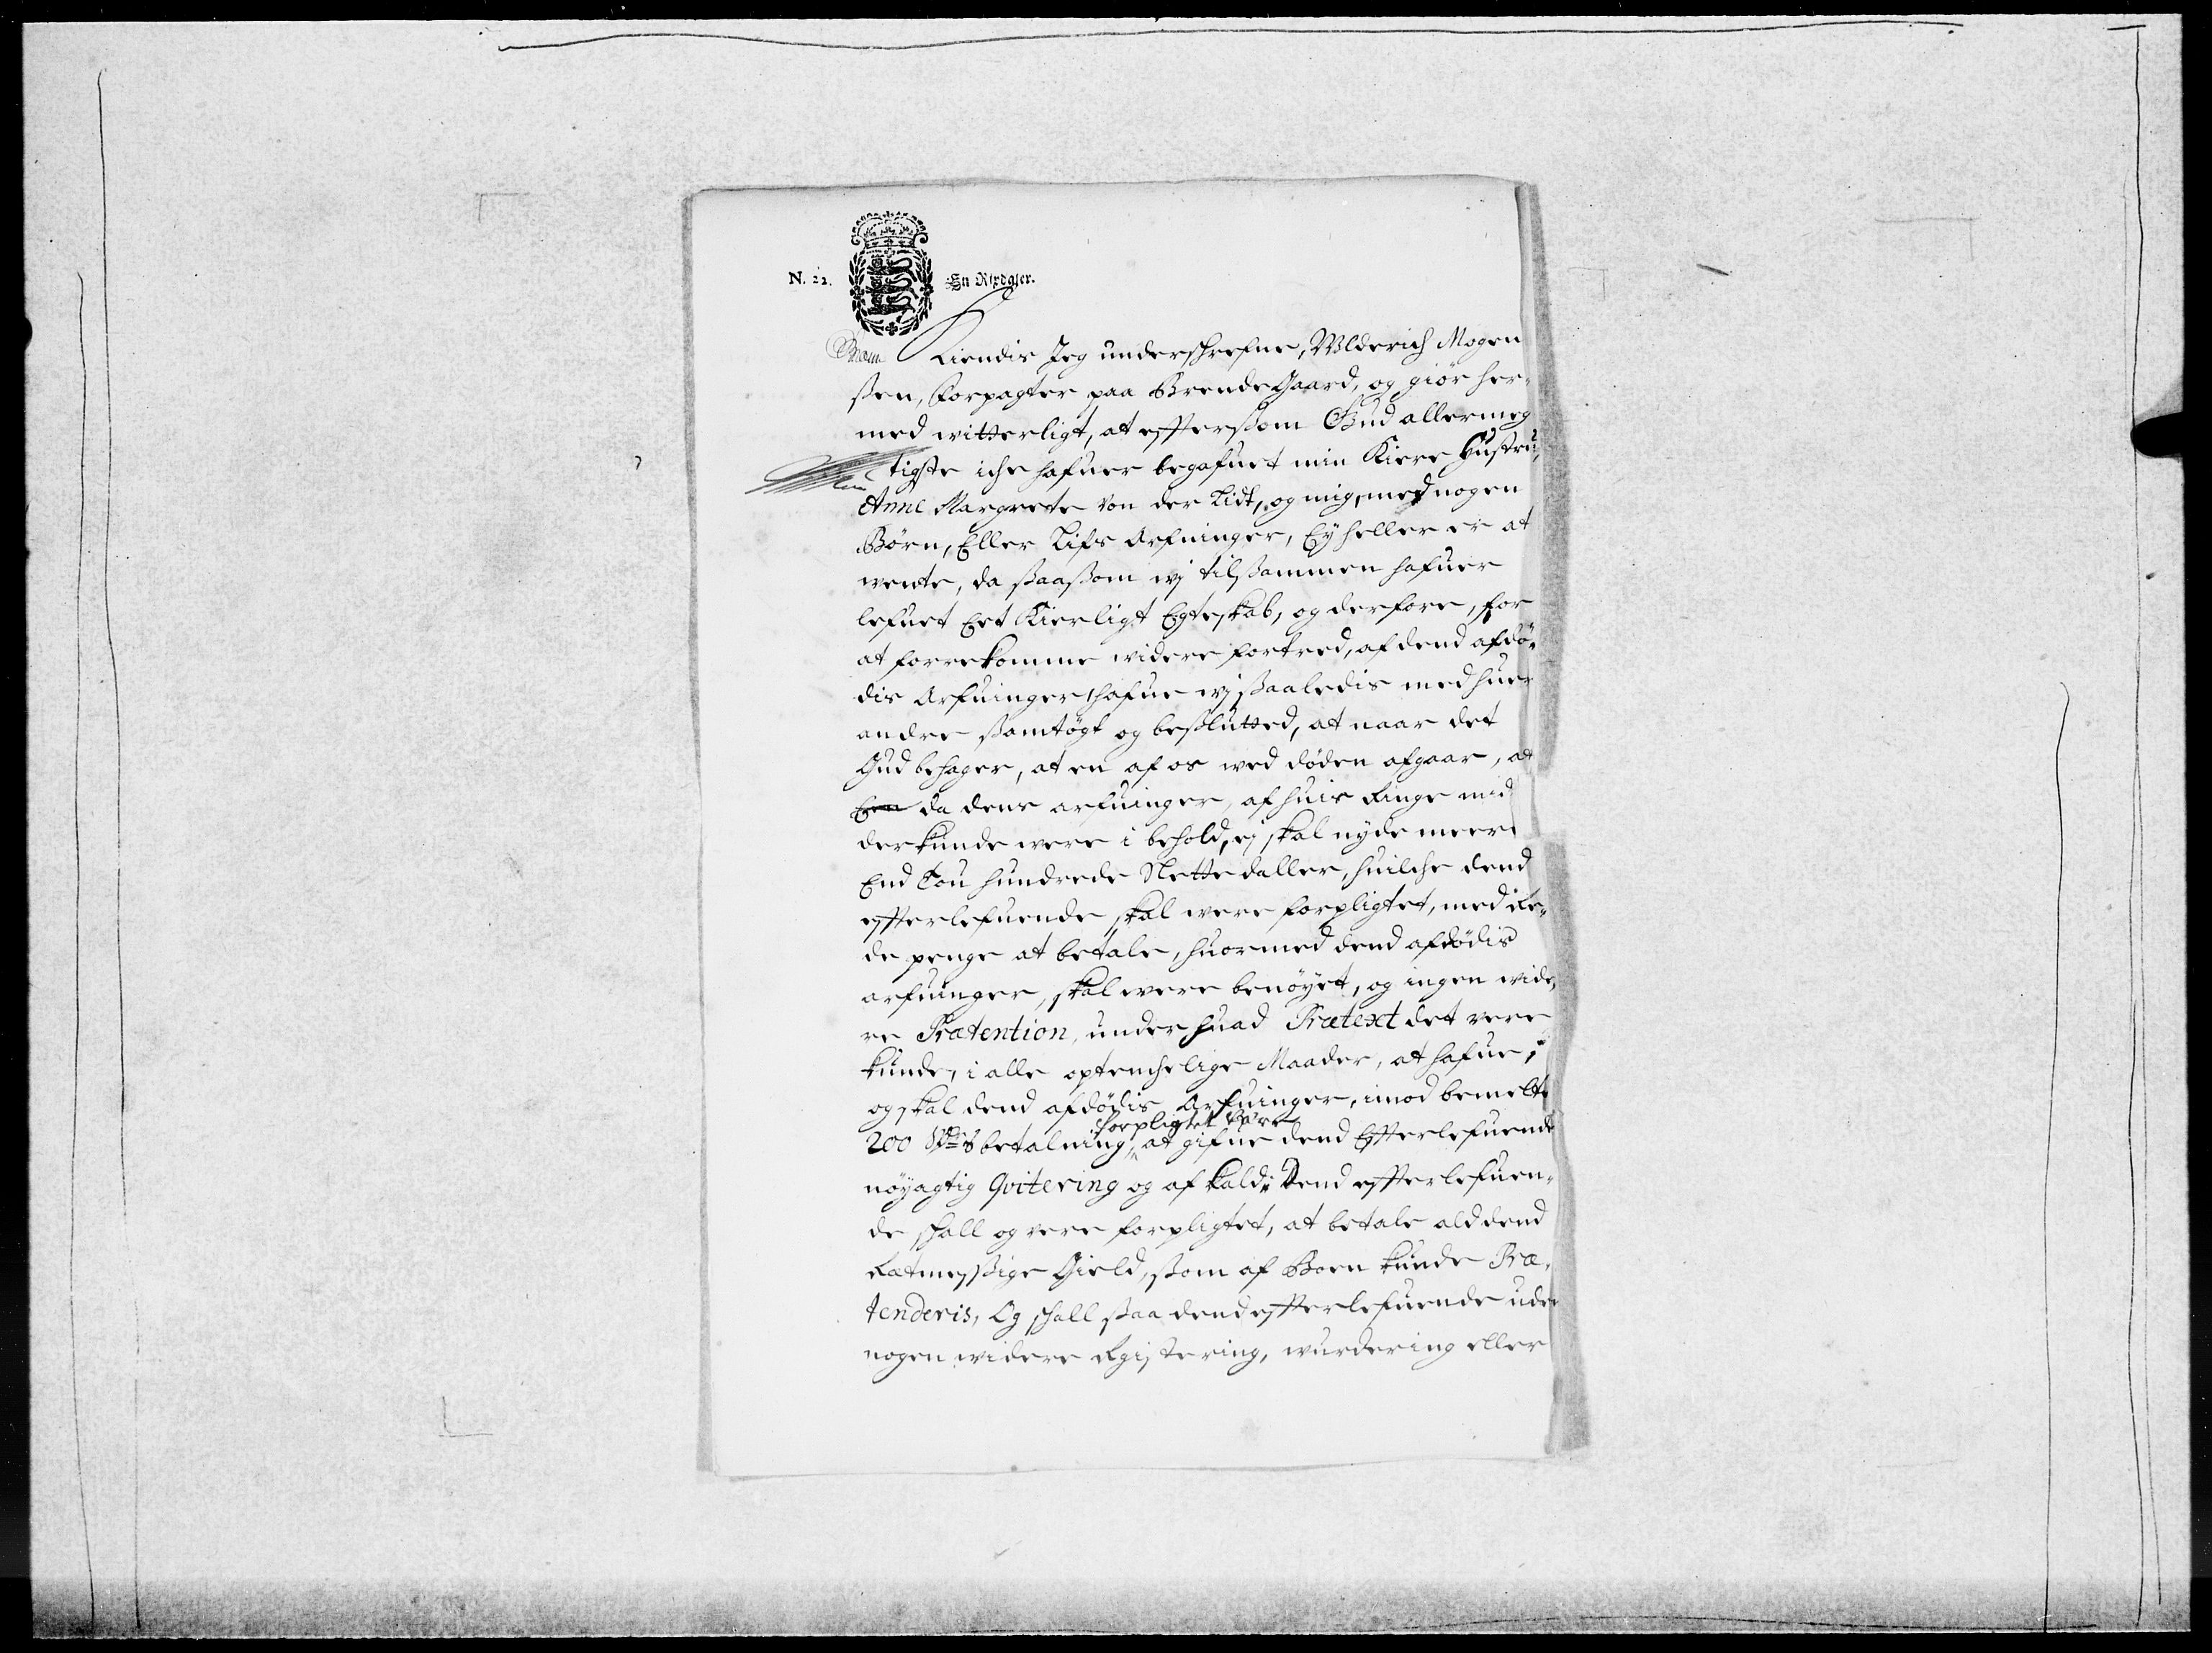 N. 22.
En Rixdaler.
Kiendis Jeg underschrefne, Wlderich Mogen
sen, Forpagter paa BrendeGaard, og giør her¬
med witterligt, at effterssom Gud allermeg
tigste iche hafuer begafuet min Kiere Hustru,
Anne Margrete von der Lidt, og mig, med nogen
Børn, Eller Lifs Arfuinger, Ey heller er at
wente, da ssaassom wj tilssammen hafuer
lefuet Eet Kierligt Egteskab, og derfore, for
at forrekomme widere fortred, af dend afdø¬
dis Arfuinger, hafue wj ssaaledis med huer
andre ssamtøgt og beslutted, at naar det
Gud behager, at en af os ved døden afgaar, at
Een da dens arfuinger, af huis Ringe mid
der kunde were i behold, ej skal nyde meere
End Tou hundrede Slettedaller, huilche dend
effterlefuende skal were forpligtet, med Re¬
de penge at betale, huormed dend afdødis
arfuinger, skal were benøyet, og ingen wide,
re Prætention, under huad Prætext det vere
kunde, i alle optenchelige Maader, at hafue,
og skal dend afdødis Arfuinger, imod bemelte
forpligtet være
200 betalning, at gifue dend Effterlefuende
nøyagtig Qvitering og afkald. Dend effterlefuen¬
de schall og vere forpligtet, at betale ald dend
Retmessige Gield, ssom af Boen kunde Præ¬
tenderis, Og schall ssaa dend effterlefuende uden
nogen widere Registering, wurdering eller